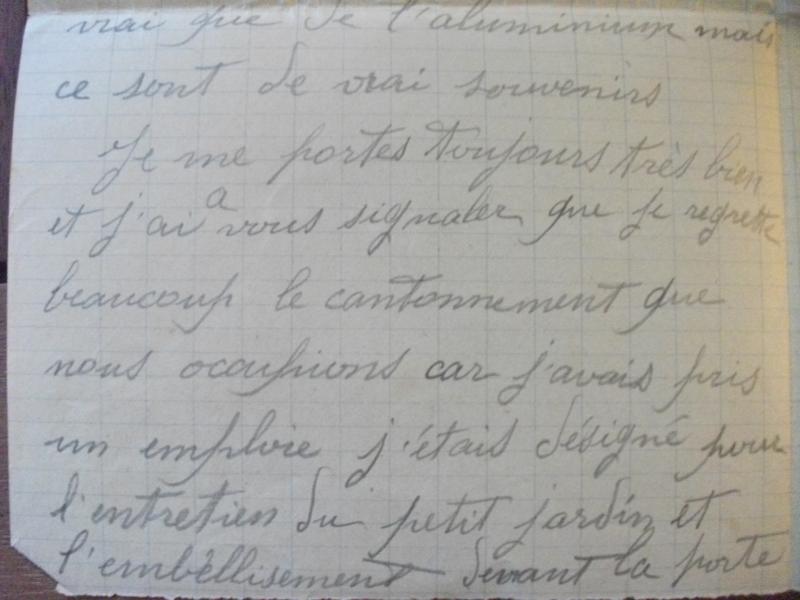 vrai que de l'aluminium mais
ce sont de vrai souvenirs
Je me portes toujours très bien
et j'ai a vous signaler que je regrette
beaucoup le cantonnement que
nous occupions car j'avais pris
un emploie j'étais désigné pour
l'entretien du petit jardin et
l'embéllisement devant la porte